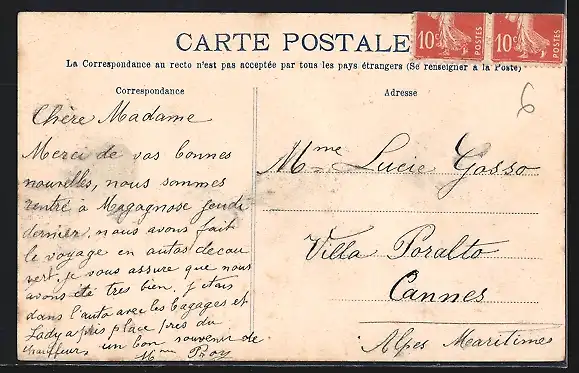 CARTE POSTALE
10c POSTES 10c POSTES
La Correspondance au recto n'est pas acceptée par tous les pays étrangers (Se renseigner à la Poste)
Correspondance
Chère Madame
Merci de vos bonnes
nouvelles, nous sommes
rentré à Magagnosc jeudi
dernier, nous avons fait
le voyage en autos decou
vert, je vous assure que nous
avons été tres bien, j'etais
dans l'auto avec les bagages et
Lady a pris place près du
chauffeurs, un bon souvenir de
Mme
Adresse
6
Mme Lucie Gosso
Villa Poralto
Cannes
Alpes Maritimes